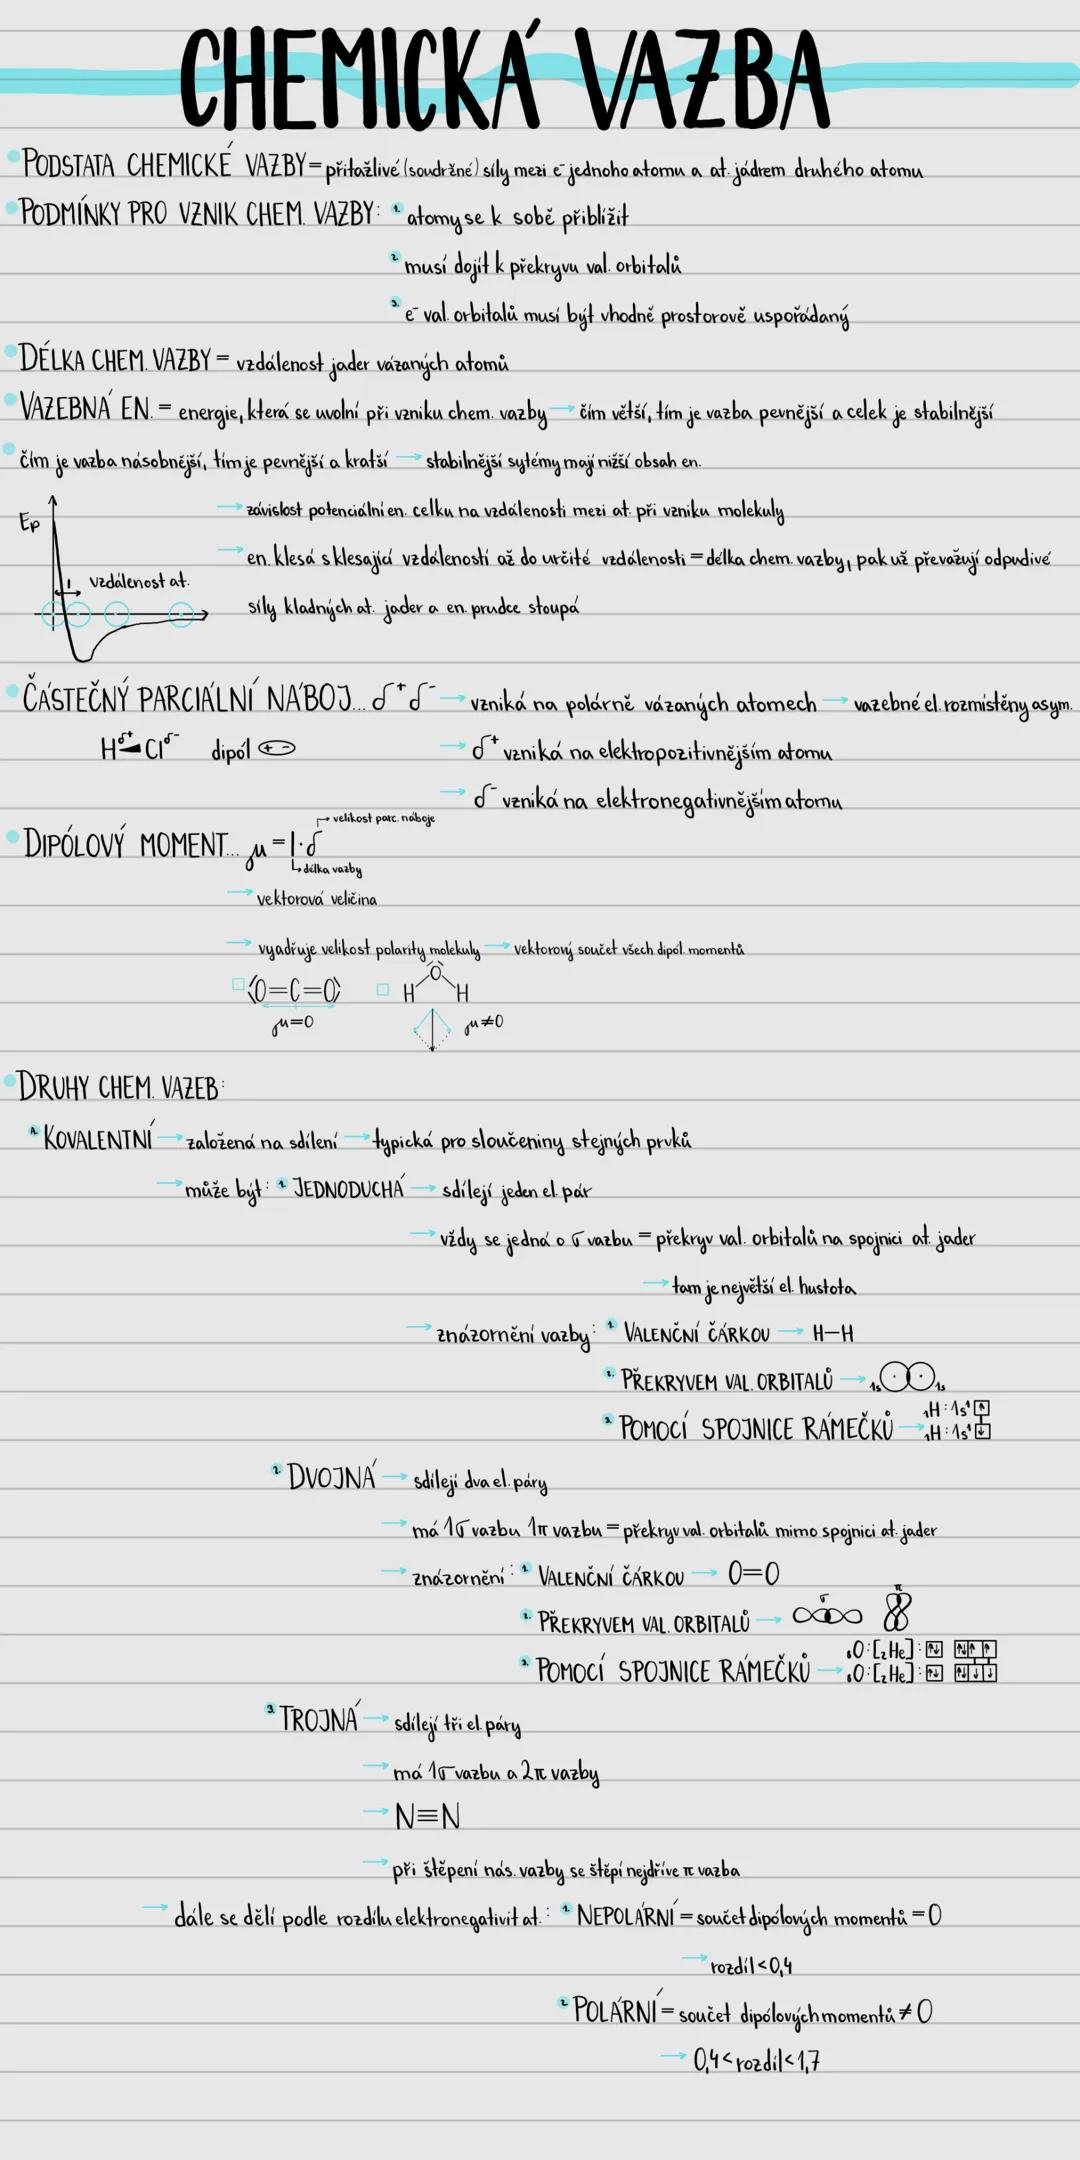 CHEMICKÁ VAZBA
PODSTATA CHEMICKÉ VAZBY = přitažlivé (soudržné) síly mezi e⁻ jednoho atomu a at. jádrem druhého atomu
PODMÍNKY PRO VZNIK CHEM. VAZBY: 1. atomy se k sobě přiblížit
2. musí dojít k překryvu val. orbitalů
3. e⁻ val. orbitalů musí být vhodně prostorově uspořádaný
DÉLKA CHEM. VAZBY = vzdálenost jader vázaných atomů
VAZEBNÁ EN. = energie, která se uvolní při vzniku chem. vazby → čím větší, tím je vazba pevnější a celek je stabilnější
čím je vazba násobnější, tím je pevnější a kratší → stabilnější sytémy mají nižší obsah en.
→ závislost potenciální en. celku na vzdálenosti mezi at. při vzniku molekuly
Ep
→ en. klesá s klesající vzdáleností až do určité vzdálenosti = délka chem. vazby, pak už převažují odpudivé
l vzdálenost at.
síly kladných at. jader a en. prudce stoupá
ČÁSTEČNÝ PARCIÁLNÍ NÁBOJ... δ⁺ δ⁻ → vzniká na polárně vázaných atomech → vazebné el. rozmístěny asym.
H^δ+ Cl^δ- dipól + - → δ⁺ vzniká na elektropozitivnějším atomu
→ δ⁻ vzniká na elektronegativnějším atomu
→ velikost parc. náboje
DIPÓLOVÝ MOMENT... μ = l · δ
↳ délka vazby
→ vektorová veličina
→ vyadřuje velikost polarity molekuly → vektorový součet všech dipól. momentů
O=C=O H O H
μ=0 μ≠0
DRUHY CHEM. VAZEB:
1. KOVALENTNÍ → založená na sdílení → typická pro sloučeniny stejných prvků
→ může být: 1. JEDNODUCHÁ → sdílejí jeden el. pár
→ vždy se jedná o σ vazbu = překryv val. orbitalů na spojnici at. jader
→ tam je největší el. hustota
→ znázornění vazby: 1. VALENČNÍ ČÁRKOU → H–H
2. PŘEKRYVEM VAL. ORBITALŮ → 1s 1s
₁H: 1s¹ ↑
3. POMOCÍ SPOJNICE RÁMEČKŮ → ₁H: 1s¹ ↓
2. DVOJNÁ → sdílejí dva el. páry
→ má 1σ vazbu 1π vazbu = překryv val. orbitalů mimo spojnici at. jader
→ znázornění: 1. VALENČNÍ ČÁRKOU → O=O
σ π
2. PŘEKRYVEM VAL. ORBITALŮ →
₈O: [₂He]: ↑↓ ↑↓ ↑ ↑
3. POMOCÍ SPOJNICE RÁMEČKŮ → ₈O: [₂He]: ↑↓ ↑↓ ↓ ↓
3. TROJNÁ → sdílejí tři el. páry
→ má 1σ vazbu a 2π vazby
→ N≡N
→ při štěpení nás. vazby se štěpí nejdříve π vazba
→ dále se dělí podle rozdílu elektronegativit at.: 1. NEPOLÁRNÍ = součet dipólových momentů = 0
→ rozdíl < 0,4
2. POLÁRNÍ = součet dipólových momentů ≠ 0
→ 0,4 < rozdíl < 1,7